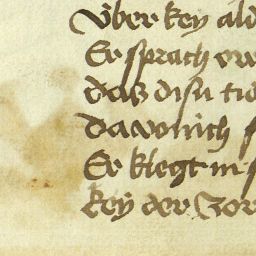 Vber key ald
Er sprach ew
das disú tie
da von ich
Er klegt in
key der zor